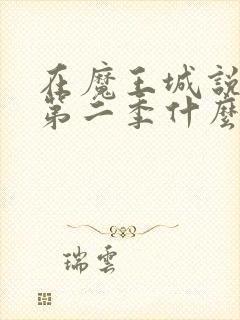 在魔王城說
第二季什麼
瑞雲